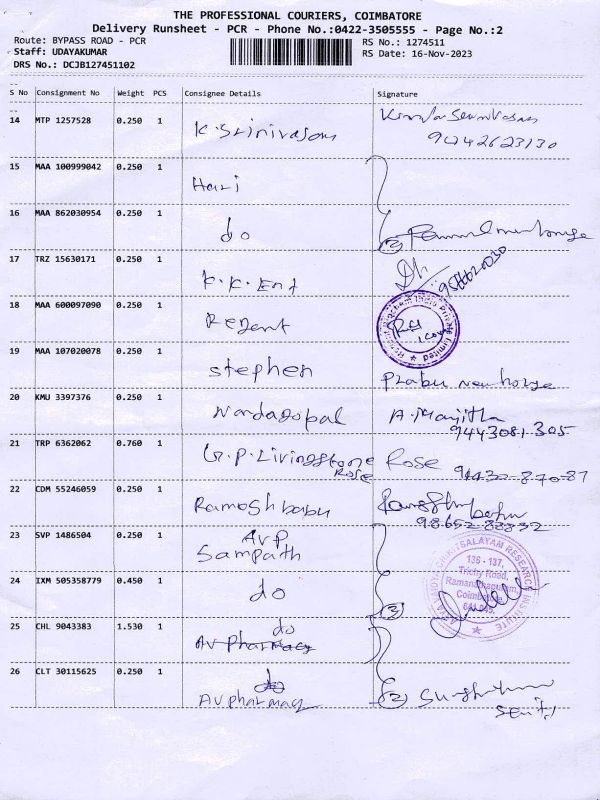 THE PROFESSIONAL COURIERS, COIMBATORE
Delivery Runsheet - PCR - Phone No.:0422-3505555 - Page No.:2
Route: BYPASS ROAD - PCR
RS No.: 1274511
Staff: UDAYAKUMAR
RS Date: 16-Nov-2023
DRS No.: DCJB127451102
S No Consignment No Weight PCS Consignee Details Signature
14 MTP 1257528 0.250 1 K. Srinivasan
15 MAA 100999042 0.250 1 Hari
16 MAA 862030954 0.250 1 do (2)
17 TRZ 15630171 0.250 1 K.K. Ent
18 MAA 600097090 0.250 1 Regent
19 MAA 107020078 0.250 1 stephen Prabu
20 KMU 3397376 0.250 1 Nandagopal A. Manjitha
9443081305
21 TRP 6362062 0.760 1 G.P. Livingstone Rose
Rose
22 CDM 55246059 0.250 1 Ramesh babu
98652 88832
23 SVP 1486504 0.250 1 AVP
Sampath
24 IXM 505358779 0.450 1 do (3)
136 - 137,
Trichy Road,
Ramanathapuram,
Coimbatore
641 045.
25 CHL 9043383 1.530 1 do
AV Pharmacy
26 CLT 30115625 0.250 1 do
AV pharmacy (2)